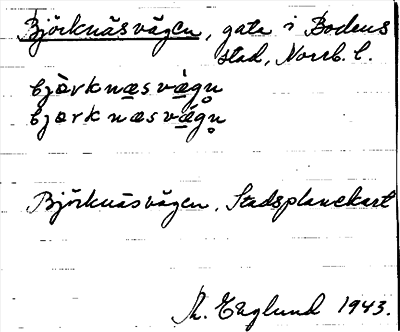 Björknäsvägen, gata i Bodens
stad, Norrb. l.
bjö̀rknæsvä̀gn̥
björknæsvägn̥
Björknäsvägen. Stadsplanekart
Th. Englund 1943.